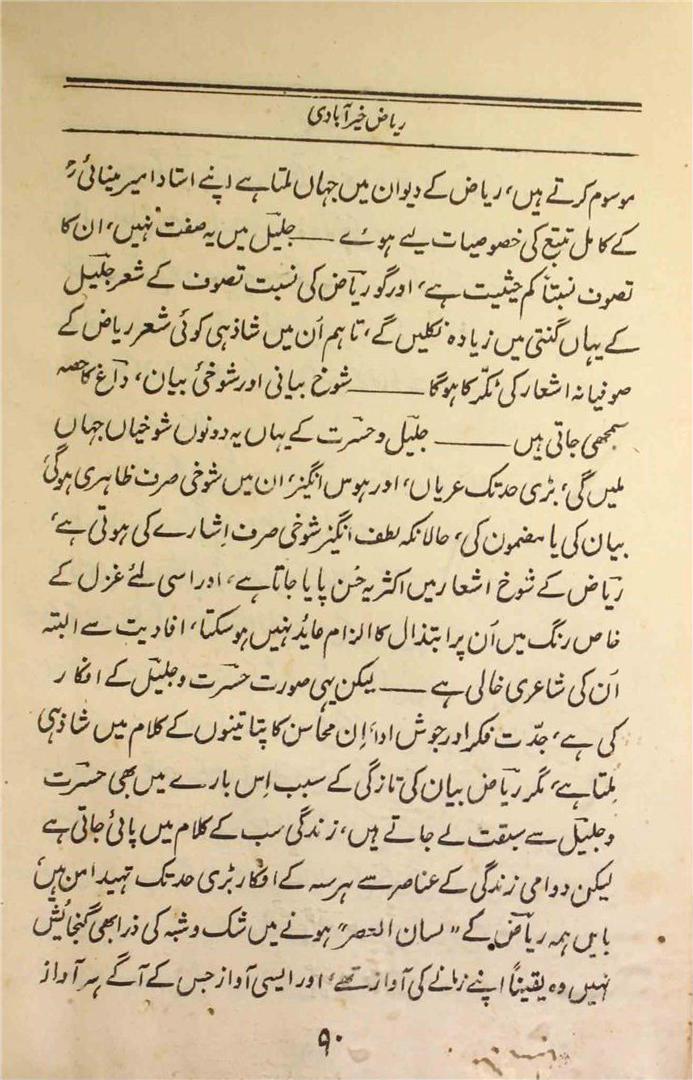 ریاض خیرآبادی
موسوم کرتے ہیں، ریاض کے دیوان میں جہاں ملتا ہے اپنے استاد امیر مینائیؒ
کے کامل تتبع کی خصوصیات لیے ہوئے ــــ جلیلؔ میں یہ صفت نہیں، ان کا
تصوف نسبتاً کم حیثیت ہے، اور گو ریاضؔ کی نسبت تصوف کے شعر جلیلؔ
کے یہاں گنتی میں زیادہ نکلیں گے، تاہم اُن میں شاذ ہی کوئی شعر ریاض کے
صوفیانہ اشعار کی ٹکّر کا ہوگا ــــــ شوخ بیانی اور شوخیٔ بیان، داغؔ کا حصہ
سمجھی جاتی ہیں ــــــ جلیلؔ و حسرتؔ کے یہاں یہ دونوں شوخیاں جہاں
ملیں گی، بڑی حد تک عریاں، اور ہوس انگیز، ان میں شوخی صرف ظاہری ہوگی
بیان کی یا مضمون کی، حالانکہ لطف انگیز شوخی صرف اِشارے کی ہوتی ہے،
ریاضؔ کے شوخ اشعار میں اکثر یہ حُسن پایا جاتا ہے، اور اسی لئے غزل کے
خاص رنگ میں اُن پر ابتذال کا الزام عاید نہیں ہوسکتا، افادیت سے البتہ
اُن کی شاعری خالی ہے ــــ لیکن یہی صورت حسرتؔ و جلیلؔ کے افکار
کی ہے، جدّت فکر اور جوش ادا، اِن محاسن کا پتا تینوں کے کلام میں شاذ ہی
مِلتا ہے، مگر ریاضؔ بیان کی تازگی کے سبب اِس بارے میں بھی حسرتؔ
و جلیلؔ سے سبقت لے جاتے ہیں، زندگی سب کے کلام میں پائی جاتی ہے
لیکن دوامی زندگی کے عناصر سے ہر سہ کے افکار بڑی حد تک تہیدامن ہیں،
بایں ہمہ ریاضؔ کے "لسان العصر" ہونے میں شک و شبہ کی ذرا بھی گنجائش
نہیں وہ یقیناً اپنے زمانے کی آواز تھے، اور ایسی آواز جس کے آگے ہر آواز
۹۰